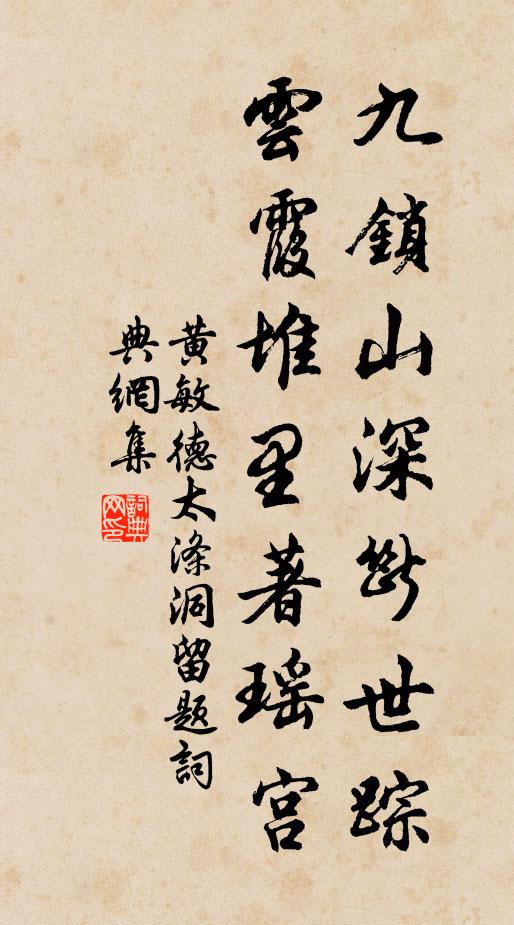 九鎖山深斷世踪
雲霞堆里著瑶宫
黄敏德太滌洞留题詞
典網集
詞典網印